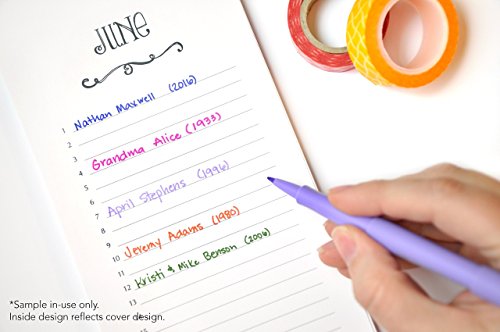 JUNE
1 Nathan Maxwell (2016)
2
3 Grandma Alice (1933)
4
5
6 April Stephens (1996)
7
8
9 Jeremy Adams (1980)
10
11 Kristi & Mike Benson (2006)
12
13
*Sample in-use only.
Inside design reflects cover design.
15